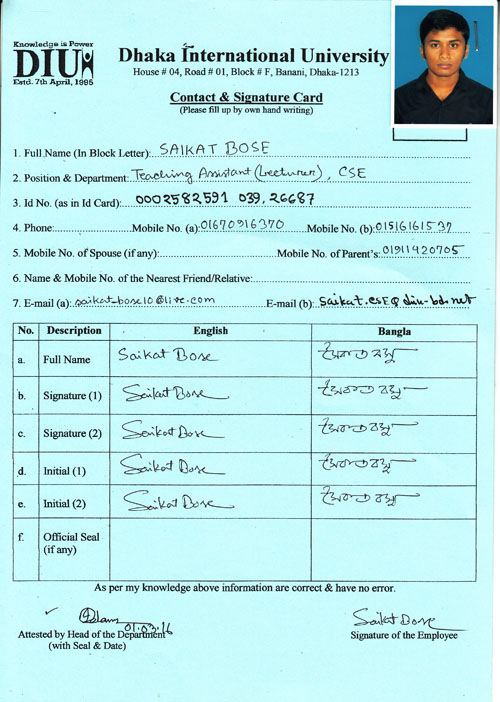 Knowledge is Power
DIU
Estd. 7th April, 1995
Dhaka International University
House # 04, Road # 01, Block # F, Banani, Dhaka-1213
Contact & Signature Card
(Please fill up by own hand writing)
1. Full Name (In Block Letter): SAIKAT BOSE
2. Position & Department: Teaching Assistant (Lecturer), CSE
3. Id No. (as in Id Card): 0002582591 039,26687
4. Phone: Mobile No. (a): 01670916370 Mobile No. (b): 01516161537
5. Mobile No. of Spouse (if any): Mobile No. of Parent's: 01911420705
6. Name & Mobile No. of the Nearest Friend/Relative:
7. E-mail (a): saikat.bose10@live.com E-mail (b): saikat.cse@diu-bd.net
No. Description English Bangla
a. Full Name Saikat Bose সৈকত বসু
b. Signature (1) Saikat Bose সৈকত বসু
c. Signature (2) Saikat Bose সৈকত বসু
d. Initial (1) Saikat Bose সৈকত বসু
e. Initial (2) Saikat Bose সৈকত বসু
f. Official Seal
(if any)
As per my knowledge above information are correct & have no error.
01.03.16 Saikat Bose
Attested by Head of the Department Signature of the Employee
(with Seal & Date)